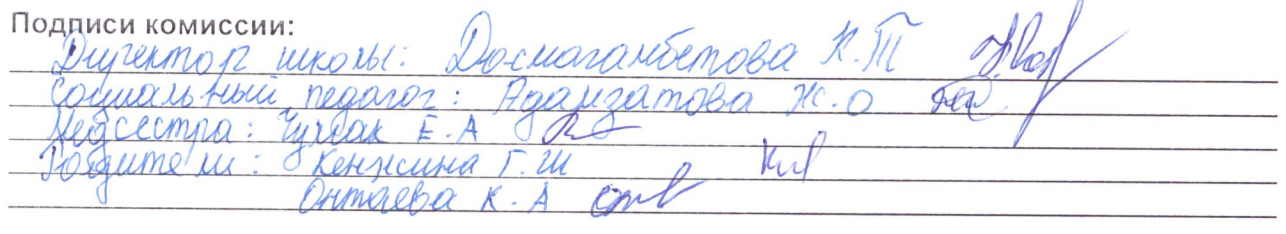 Подписи комиссии:
Директор школы: Досмагамбетова К.Т
Социальный педагог: Адамзатова Ж.О
Медсестра: Чучвак Е.А
Родители: Кенжина Г.Ш
Онтаева К.А